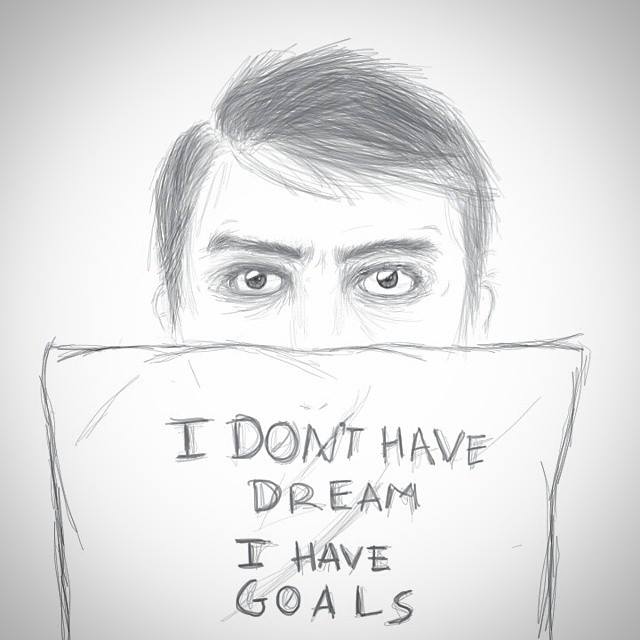 I DON'T HAVE
DREAM
I HAVE
GOALS